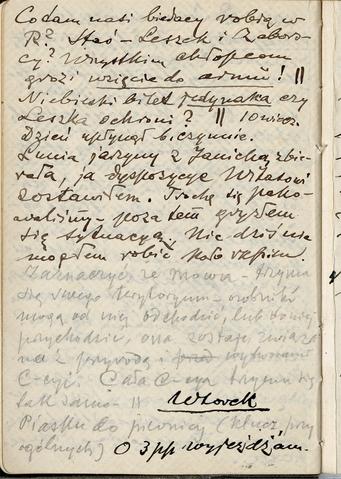 Co tam nasi biedacy robią w
R? Staś – Leszek i Zabors-
cy? Wszystkim chłopcom
grozi wzięcie do armii! ||
Niebieski bilet jedynaka czy
Leszka ochroni? || 10 wiecz.
Dzień upłynął bieżąmie.
Lunia jarzyny z Janichą zbie-
rała, ja dyspozycje Witatowi
zostawiłem. Trochę się pako-
waliśmy – poza tem gryzłem
się sytuacyą. Nic dziś nie
mogłem robić koło rzepien.
Zaznaczyć że mowa – trzyma
się swego terytoryum – osobniki
mogą od niej odchodzić, lub do niej
przychodzić, ona zostaje związa
na z przyrodą i wytworami
C-cyi. Cała C-cya trzyma się
tak samo – ||
Wtorek
Piasku do piwnicy (klucz przy
ogólnych) O 3 pp wyjeżdżam.